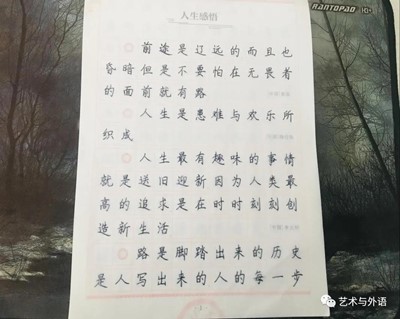 人生感悟
RANTOPAD
前途是辽远的而且也
昏暗但是不要怕在无畏者
的面前就有路
人生是患难与欢乐所
织成
人生最有趣味的事情
就是送旧迎新因为人类最
高的追求是在时时刻刻创
造新生活
路是脚踏出来的历史
是人写出来的人的每一步
艺术与外语